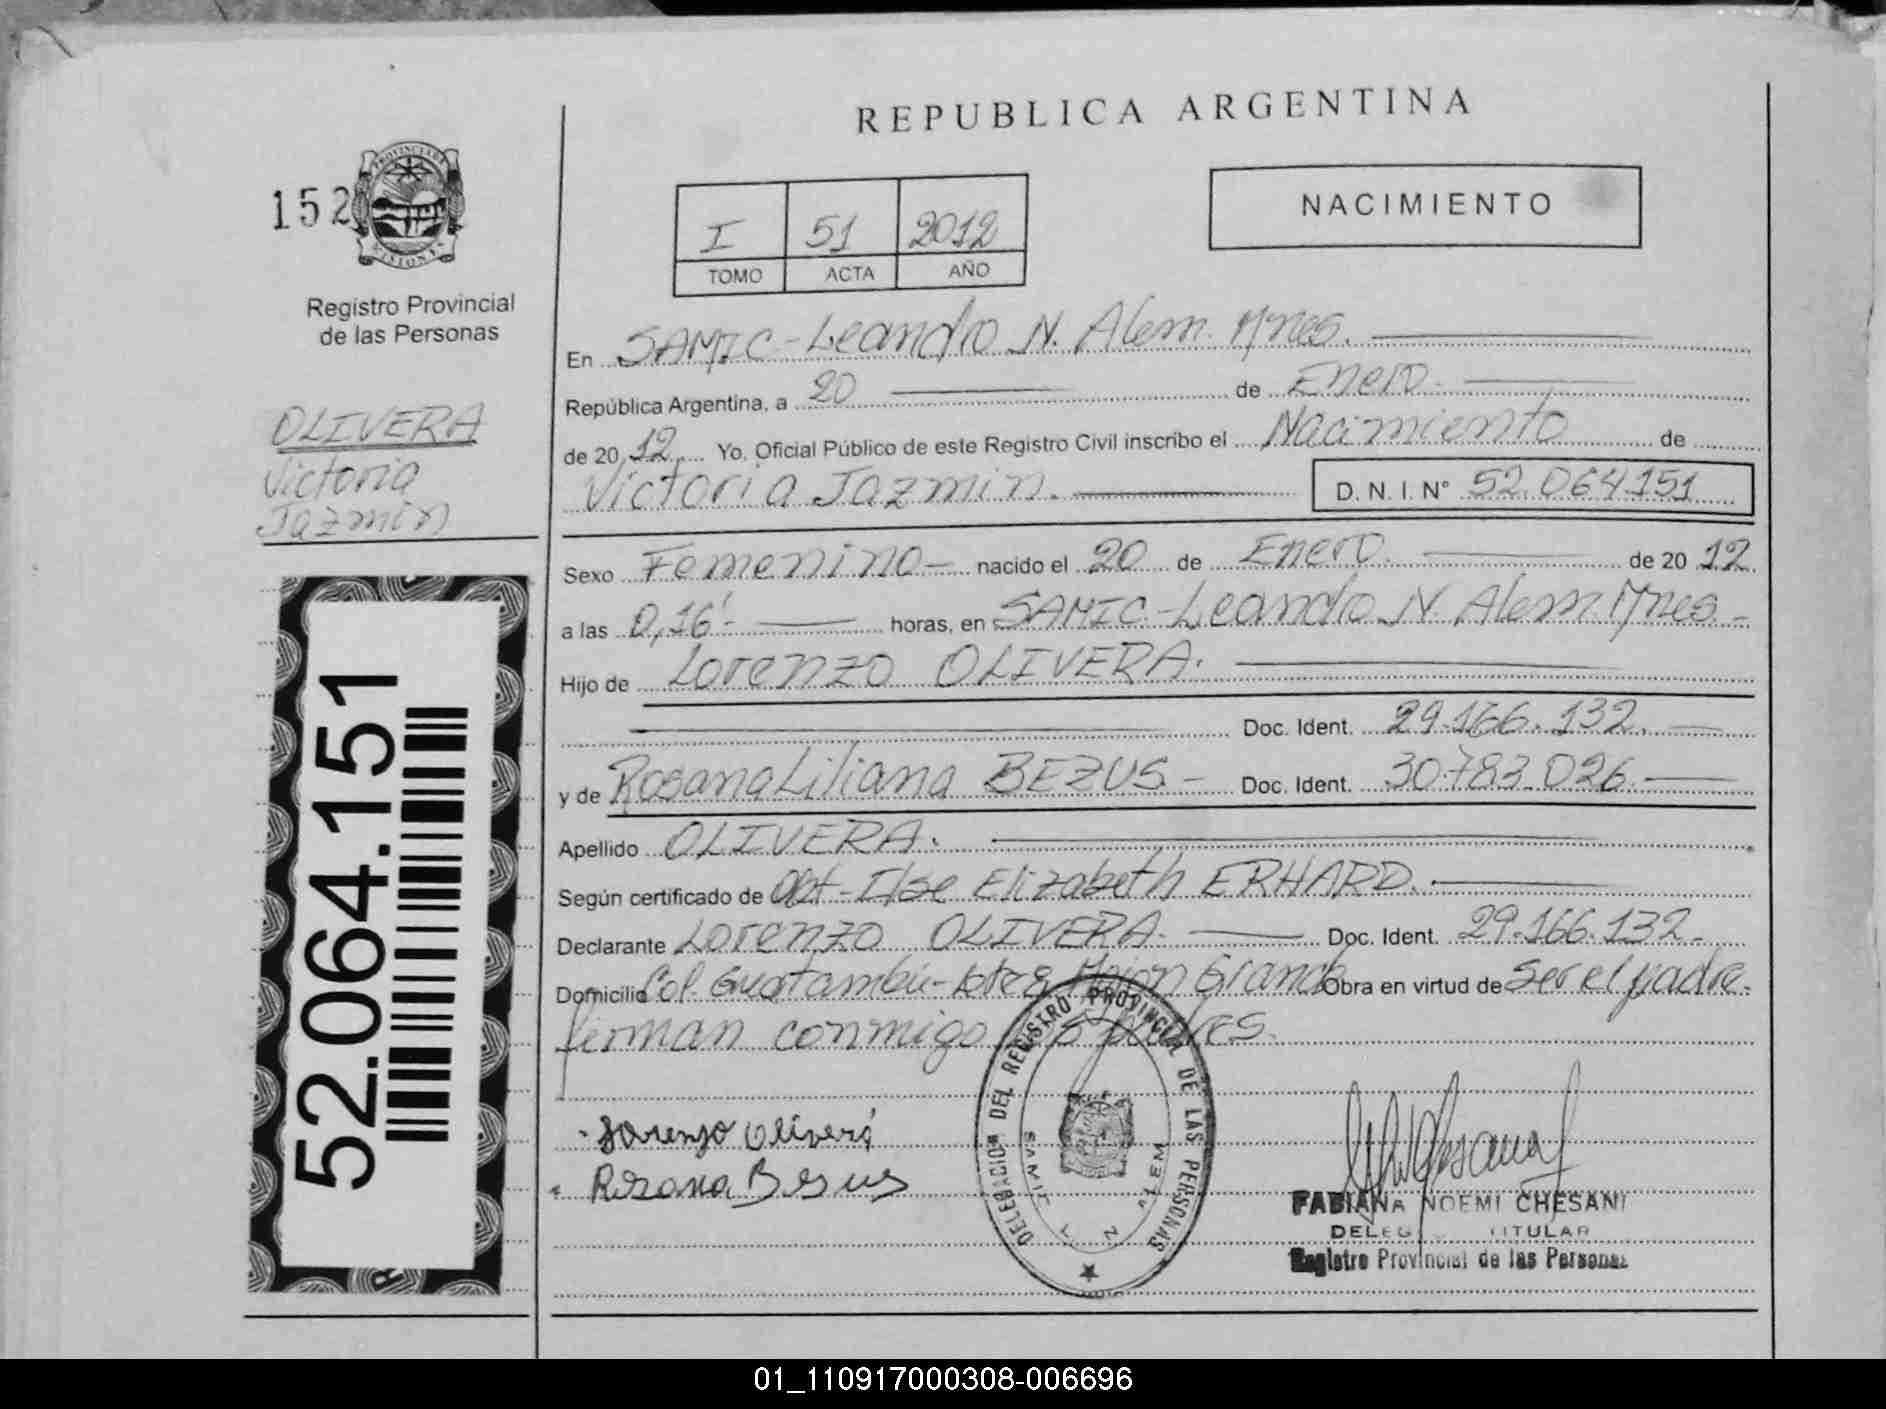 REPUBLICA ARGENTINA
152
PROVINCIA DE
MISIONES
Registro Provincial
de las Personas
I 51 2012
TOMO ACTA AÑO
NACIMIENTO
OLIVERA
Victoria
Jazmin
52.064.151
En SAMIC - Leandro N. Alem. Mnes.
República Argentina, a 20 de Enero.
de 2012. Yo, Oficial Público de este Registro Civil inscribo el Nacimiento de
Victoria Jazmin. D.N.I. N° 52.064.151
Sexo Femenino - nacido el 20 de Enero. de 2012.
a las 0,16'- horas, en SAMIC - Leandro N. Alem. Mnes. -
Hijo de Lorenzo OLIVERA.
Doc. Ident. 29.166.132.
y de Rosana Liliana BEZUS - Doc. Ident. 30.783.026.
Apellido OLIVERA.
Según certificado de Obt - Ilse Elizabeth ERHARD.
Declarante Lorenzo OLIVERA. Doc. Ident. 29.166.132.
Domicilio Col. Guatambú - Grande Obra en virtud de ser el padre.
firman conmigo los padres.
Lorenzo Olivera
Rosana Besus
DELEGACION DEL REGISTRO PROVINCIAL DE LAS PERSONAS
SAMIC L N ALEM
FABIANA NOEMI CHESANI
DELEG TITULAR
Registro Provincial de las Personas
01_110917000308-006696